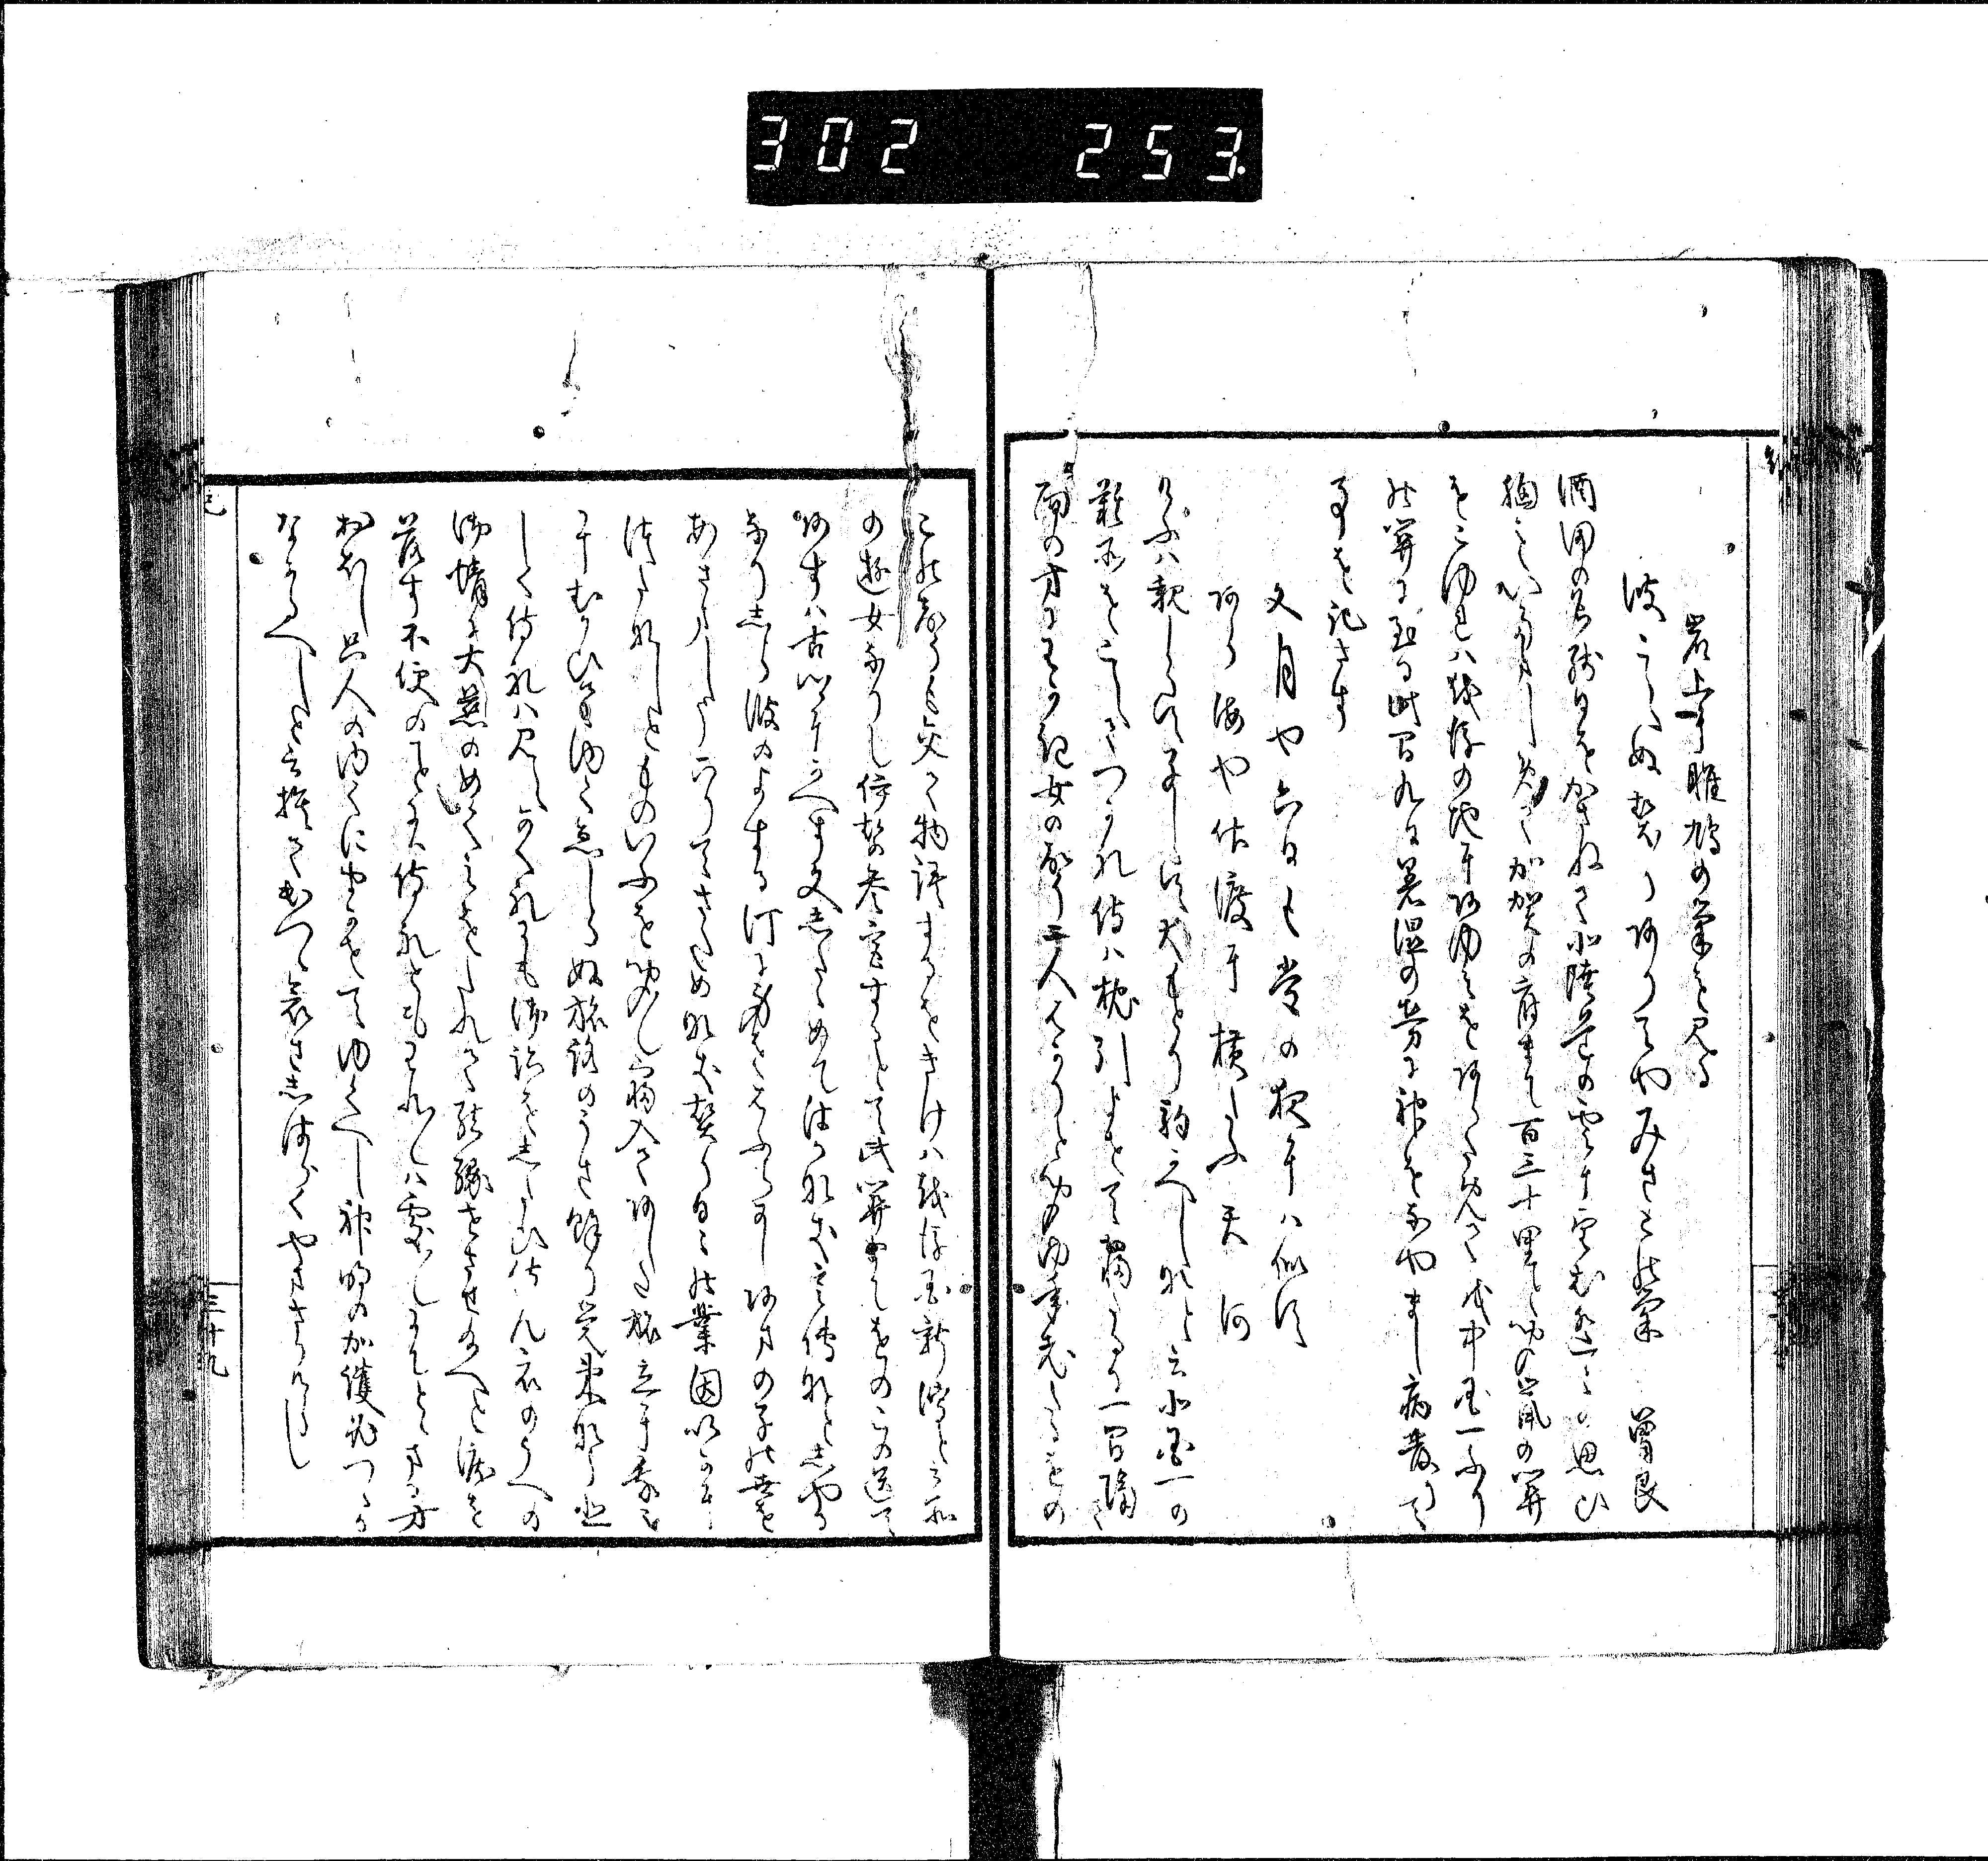 302 253
岩上に雎鳩の巣を見る
波こえぬ契りありてやみさこの巣 曽良
酒田の余波日をかさねて北陸道の雲に望む遥々の思ひ
胸をいたましめて加賀の府まて百三十里と聞鼠の関
をこゆれは越後の地に歩行を改て越中国一ふり
の関に到る此間九日暑湿の労に神をなやまし病發りて
事を記さす
文月や六日も常の夜には似す
あら海や佐渡に横たふ天河
けふは親しらす子しらす犬もとり駒返しなと云北国一の
難所をこしてつかれ侍は枕引よせて寐たるに一間隔て
面の方に若き女の声二人はかりと聞ゆ年老たるをのこ
この声も交て物語するをきけは越後国新潟と云所
の遊女なりし伊勢参宮するとて此関まてをのこの送て
あすは古郷に返す文したためてはかなき言伝なとしやる
なり しら波のよする汀に身をはふらかしあまの子の世を
あさましう下りてさためなき契り日々の業因いかに
つたなしとものいふを聞々寐入てあした旅立に我々
にむかひて行衛しらぬ旅路のうさ餘り覚束なう悲
しく侍れは見えかくれにも御跡をしたひ侍ん衣のうへの
御情に大慈のめくみをたれて結縁せさせ給へと涙を
落す不便の事には侍れとも我々は所々にてとまる方
おほし只人の行にまかせて行へし神明の加護必つゝか
なかるへしと云捨て出つゝ哀さしはらくやまさりけらし
三十九